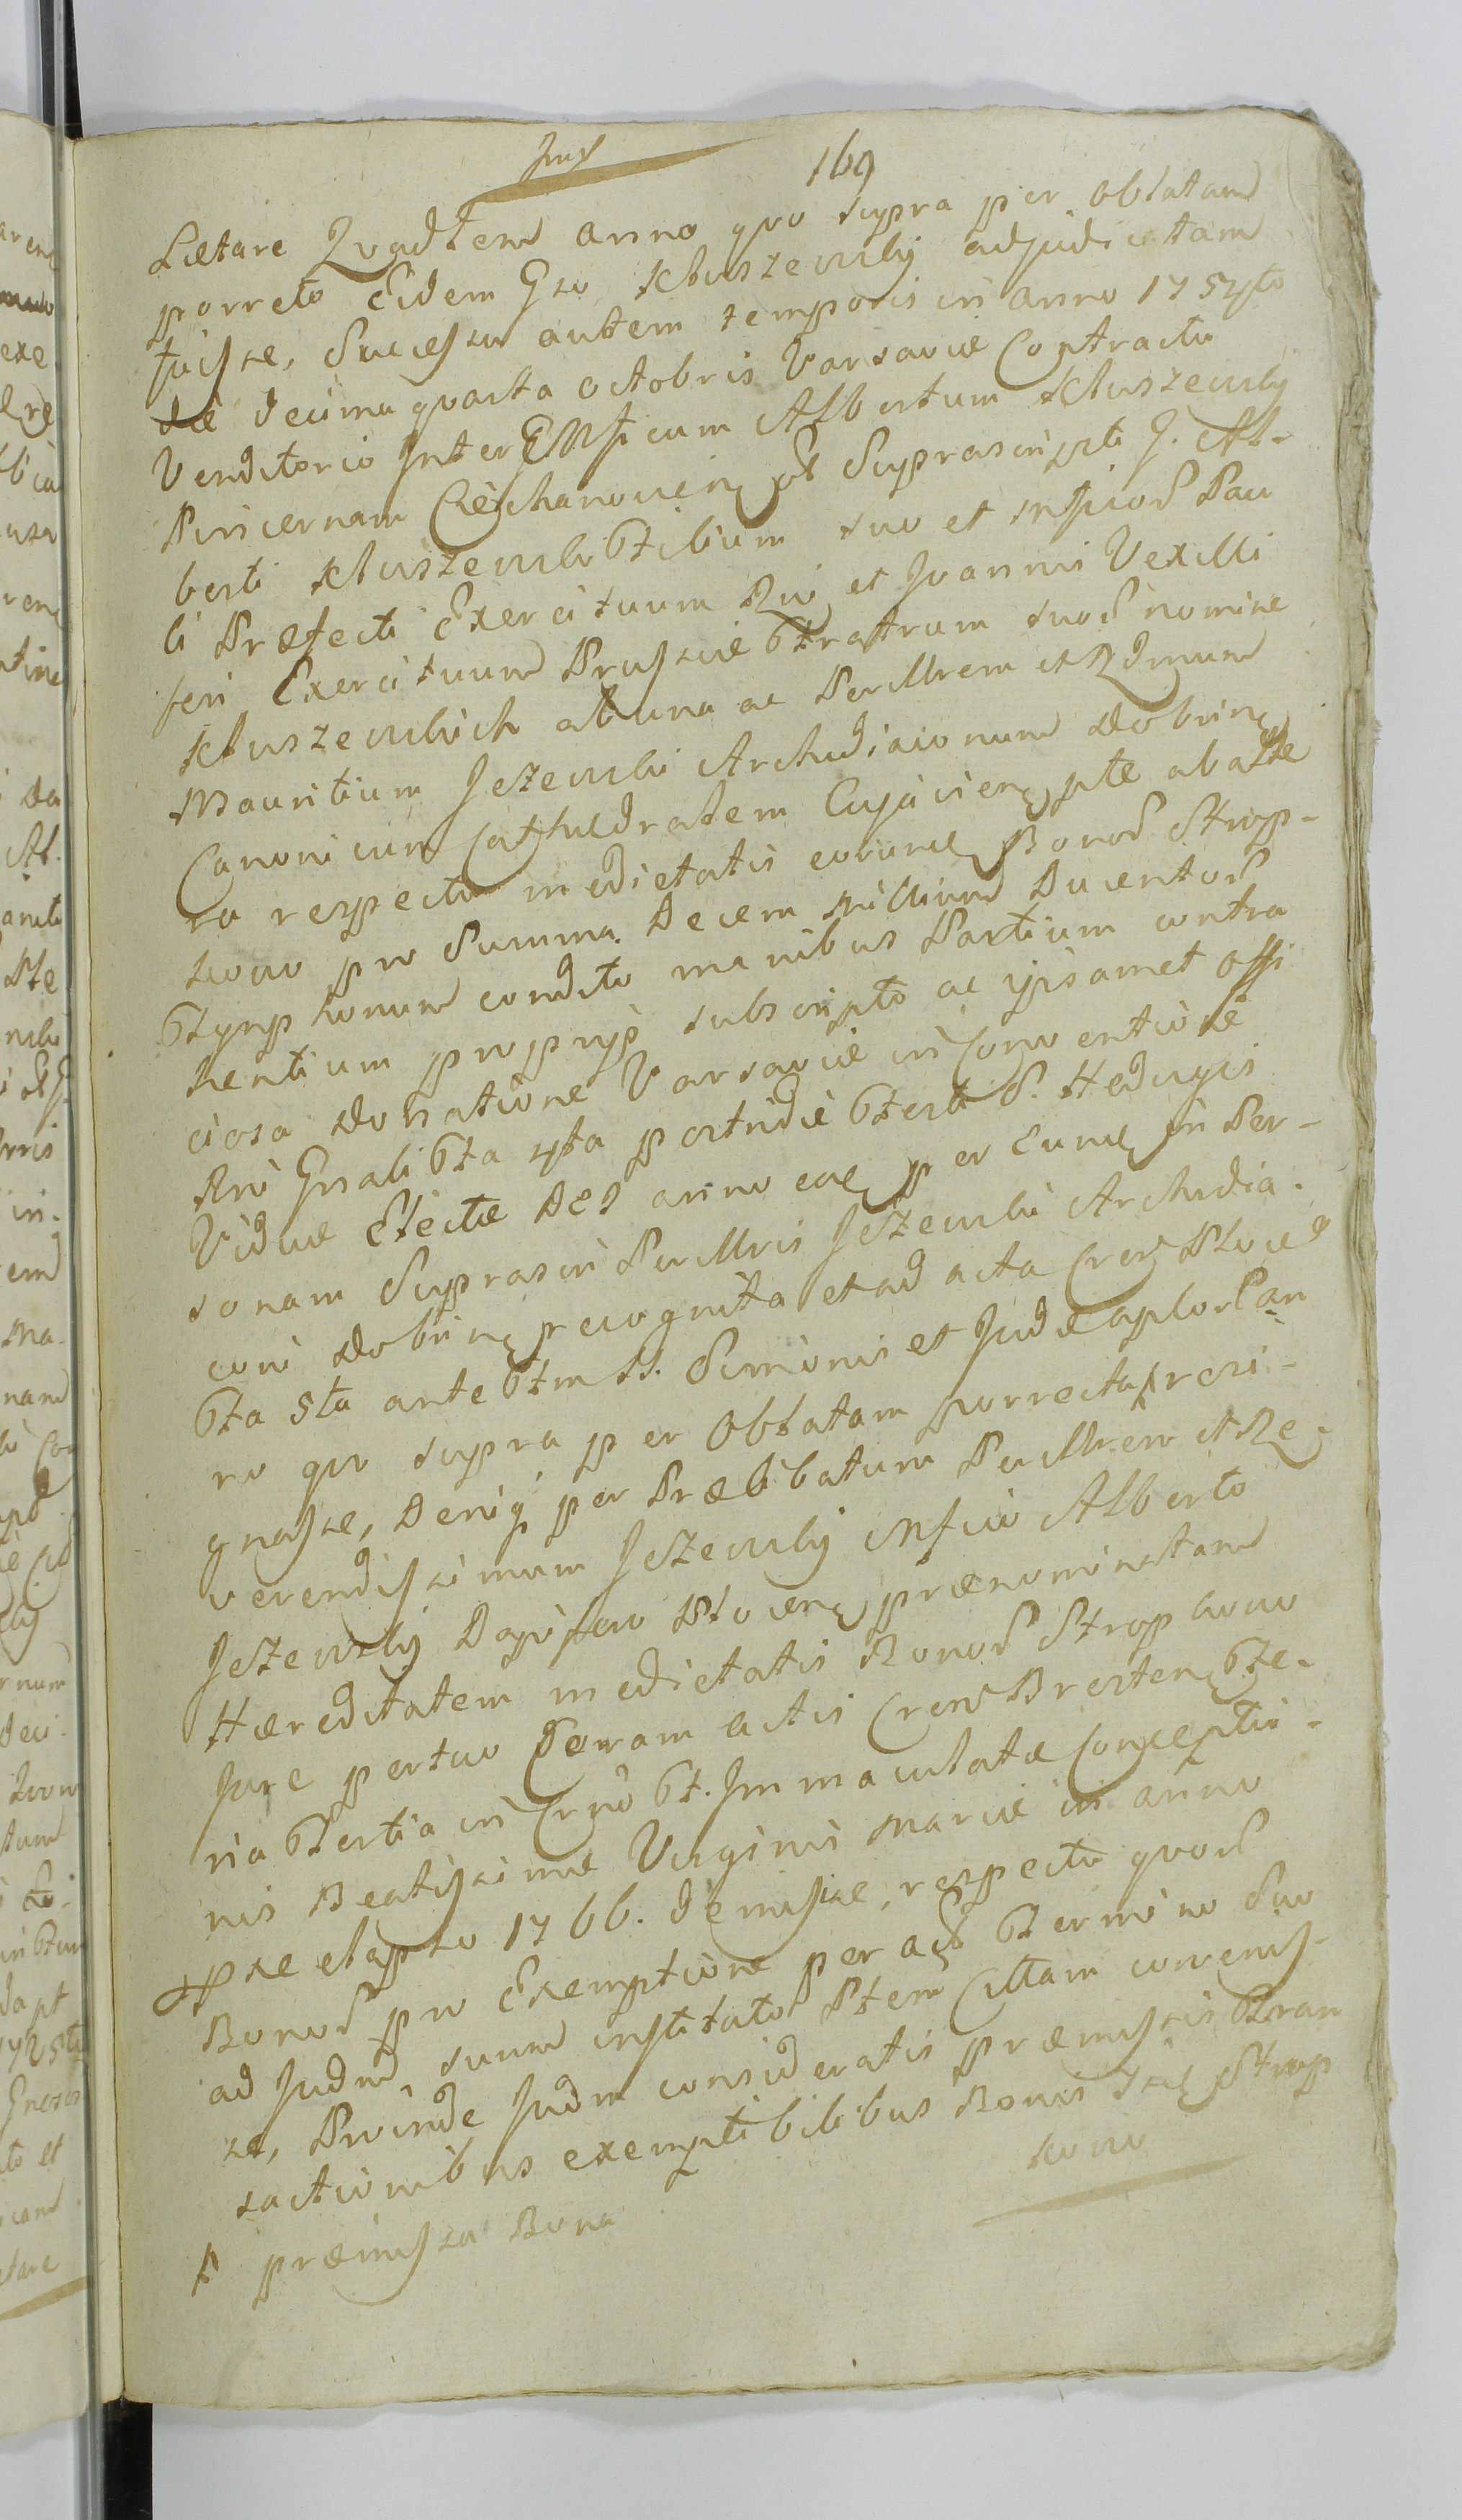 169
Lætare Qvadlem anno qvo supra per oblatam
porrecto Eidem Gso Kluszewskÿ adjudicatam
fuisse, Successu autem temporis in anno 1754to
die decima qvarta octobris Varsaviæ Contractu
Venditorio Inter Mficum Albertum Kluszewskÿ
Pincernam Ciechanovien olim Suprascripti G. Al-
berti Kluszewski filium suo et Mficor Pau
li Præfecti Exercituum Rni et Joannis Vexilli
feri Exercituum Prussiæ fratrum suor nomine
Kluszewskich ab una ac Perillrem et Rdmum
Mauritium Jeżewski Archidiaconum Dobrinen
Canonicum Cathedralem Cujavien pte ab alte
ra respectu medietatis eorund Bonor Strop-
kowo pro Summa Decem Millium Ducentor
Tynphonum condito manibus Partium contra
hentium proprÿs subscripto ac ipsamet offi
ciosa donatione Varsaviæ in Conventione
Rni Gnali fia 4ta postridie festi S. Hedvigis
Viduæ Electæ Dei anno eod per eund in Per-
sonam Suprascri Perillris Jeżewski Archidia-
coni Dobrinen recognita et ad acta Cren Plocen
fia 5ta ante ftm SS. Simonis et Judæ aplor an
no qvo supra per Oblatam porrecta resi-
gnasse, Deniq per Prælibatum Perillrem et Re-
verendissimum Jeżewskÿ Mfico Alberto
Jeżewskÿ Dapifero Plocen prænominatam
Hæreditatem medietatis Bonor Stropkowo
Jure perpetuo Coram actis Cren Bresten Fe-
ria Tertia in Crno ft. Immaculatæ Conceptio-
nis Beatissimæ Virginis Mariæ in anno
elapso 1766. demisse, respectu qvor
Bonor pro Exemptione per actor termino Suo
ad Judm suum institato Ptem Cittam convenis-
se, Proinde Judm consideratis præmissis Tran
sactionibus exemptibilibus Bonis Strop
kowo
præmissa Bona